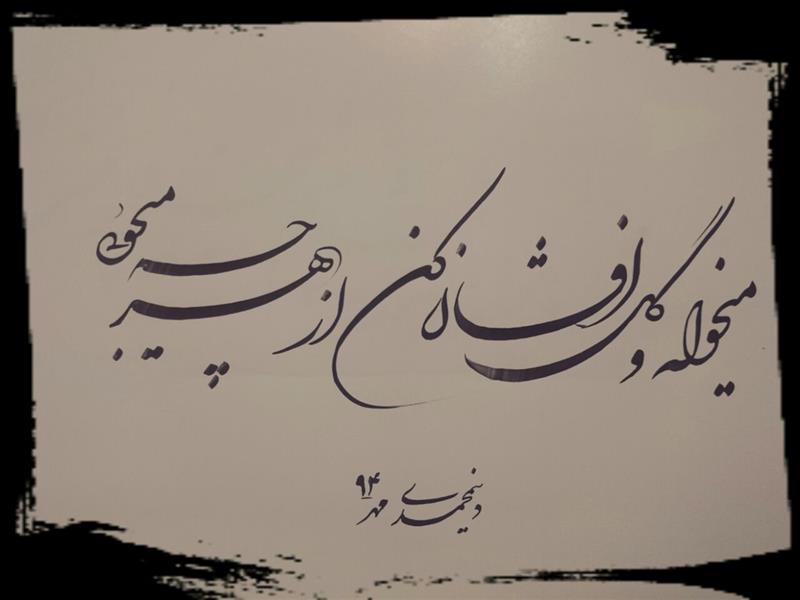 میخواه و گل افشان کن از دهر چه میجویی
دینمحمدی
مهر ۹۴